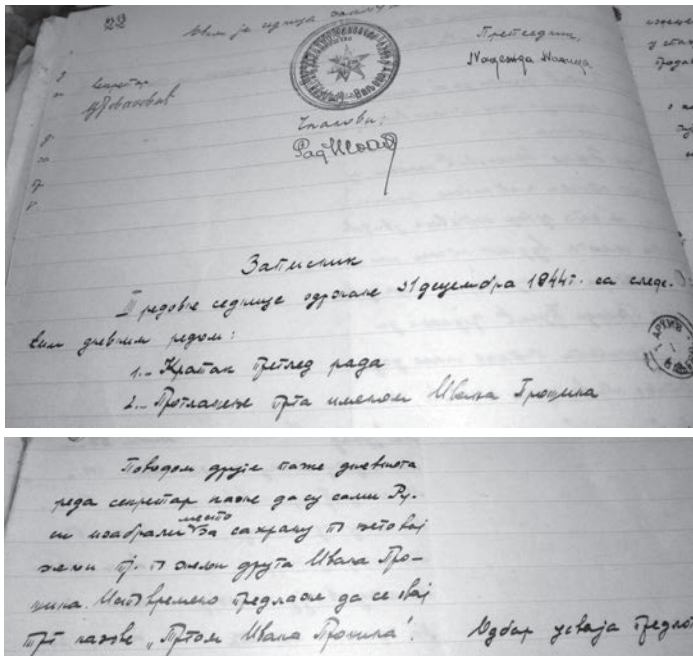 22
Овим је седница
Претседник,
Надежда
секретар
Јовановић
Чланови:
Записник
III редовне седнице одржане 31 децембра 1944 г. са следе-
ћим дневним редом:
1.- Кратак преглед рада
2.- Проглашење трга именом Ивана Пронина
АРХИВ
Поводом друге тачке дневнога
реда секретар каже да су сами Ру-
си изабрали место за сахрану по његовој
жељи тј. по жељи друга Ивана Про-
нина. Истовремено предлаже да се овај
трг назове „Тргом Ивана Пронина“. Одбор усваја предлог